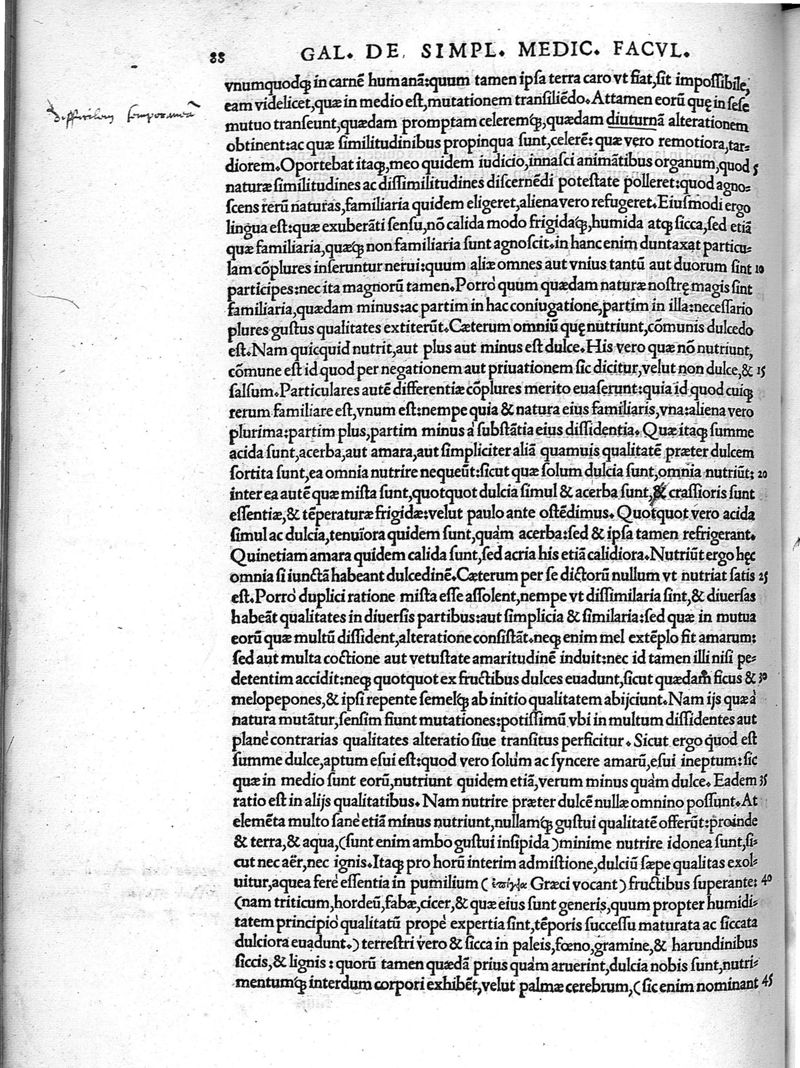 88 GAL. DE SIMPL. MEDIC. FACVL.
vnumquodq̃ in carnẽ humanã:quum tamen ipsa terra caro vt fiat,sit impossibile,
eam videlicet,quæ in medio est,mutationem transiliẽdo.Attamen eorũ quę in sese
mutuo transeunt,quædam promptam celeremq̃,quædam diuturnã alterationem
obtinent:ac quæ similitudinibus propinqua sunt,celerẽ: quæ vero remotiora,tar-
diorem.Oportebat itaq̃,meo quidem iudicio,innasci animãtibus organum,quod 5
naturæ similitudines ac dissimilitudines discernẽdi potestate polleret:quod agno-
scens rerũ naturas,familiaria quidem eligeret,aliena vero refugeret.Eiusmodi ergo
lingua est:quæ exuberãti sensu,nõ calida modo frigidaq̃,humida atq̃ sicca,sed etiã
quæ familiaria,quæq̃ non familiaria sunt agnoscit.in hanc enim duntaxat particu-
lam cõplures inseruntur nerui:quum aliæ omnes aut vnius tantũ aut duorum sint 10
participes:nec ita magnorũ tamen.Porro quum quædam naturæ nostrę magis sint
familiaria,quædam minus:ac partim in hac coniugatione,partim in illa:necessario
plures gustus qualitates extiterũt.Cæterum omniũ quę nutriunt,cõmunis dulcedo
est.Nam quicquid nutrit,aut plus aut minus est dulce.His vero quæ nõ nutriunt,
cõmune est id quod per negationem aut priuationem sic dicitur,velut non dulce,& 15
salsum.Particulares autẽ differentiæ cõplures merito euaserunt:quia id quod cuiq̃
rerum familiare est,vnum est:nempe quia & natura eius familiaris,vna:aliena vero
plurima:partim plus,partim minus à substãtia eius dissidentia.Quæ itaq̃ summe
acida sunt,acerba,aut amara,aut simpliciter aliã quamuis qualitatẽ præter dulcem
sortita sunt,ea omnia nutrire nequeũt:sicut quæ solum dulcia sunt,omnia nutriũt: 20
inter ea autẽ quæ mista sunt,quotquot dulcia simul & acerba sunt, crassioris sunt
essentiæ,& tẽperaturæ frigidæ:velut paulo ante ostẽdimus.Quotquot vero acida
simul ac dulcia,tenuiora quidem sunt,quàm acerba:sed & ipsa tamen refrigerant.
Quinetiam amara quidem calida sunt,sed acria his etiã calidiora.Nutriũt ergo hęc
omnia si iunctã habeant dulcedinẽ.Cæterum per se dictorũ nullum vt nutriat satis 25
est.Porrò duplici ratione mista esse assolent,nempe vt dissimilaria sint,& diuersas
habeãt qualitates in diuersis partibus:aut simplicia & similaria:sed quæ in mutua
eorũ quæ multũ dissident,alteratione consistãt.neq̃ enim mel extẽplo fit amarum:
sed aut multa coctione aut vetustate amaritudinẽ induit:nec id tamen illi nisi pe-
detentim accidit:neq̃ quotquot ex fructibus dulces euadunt,sicut quædam ficus & 30
melopepones,& ipsi repente semelq̃ ab initio qualitatem abijciunt.Nam ijs quæ à
natura mutãtur,sensim fiunt mutationes:potissimũ vbi in multum dissidentes aut
planè contrarias qualitates alteratio siue transitus perficitur.Sicut ergo quod est
summe dulce,aptum esui est:quod vero solùm ac syncere amarũ,esui ineptum:sic
quæ in medio sunt eorũ,nutriunt quidem etiã,verum minus quàm dulce.Eadem 35
ratio est in alijs qualitatibus.Nam nutrire præter dulcẽ nullæ omnino possunt.At
elemẽta multo sanè etiã minus nutriunt,nullamq̃ gustui qualitatẽ offerũt:proinde
& terra,& aqua,(sunt enim ambo gustui insipida)minime nutrire idonea sunt,si-
cut nec aër,nec ignis.Itaq̃ pro horũ interim admistione,dulciũ sæpe qualitas exol-
uitur,aquea ferè essentia in pumilium ( Græci vocant) fructibus superante: 40
(nam triticum,hordeũ,fabæ,cicer,& quæ eius sunt generis,quum propter humidi-
tatem principiò qualitatũ propè expertia sint,tẽporis successu maturata ac siccata
dulciora euadunt.) terrestri vero & sicca in paleis,fœno,gramine,& harundinibus
siccis,& lignis : quorũ tamen quædã prius quàm aruerint,dulcia nobis sunt,nutri-
mentumq̃ interdum corpori exhibẽt,velut palmæ cerebrum,(sic enim nominant 45